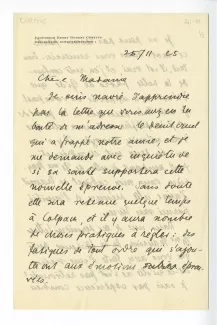 25/11 25
Chère Madame
Je suis navré d'apprendre
par la lettre que vous avez eu la
bonté de m'adresser le deuil cruel
qui a frappé notre amie, et je
me demande avec inquiétude
si sa santé supportera cette
nouvelle épreuve. Sans doute
elle sera retenue quelque temps
à Colpach et il y aura nombre
de choses pratiques à régler ; des
fatigues de tout ordre qui s'ajou-
teront aux émotions